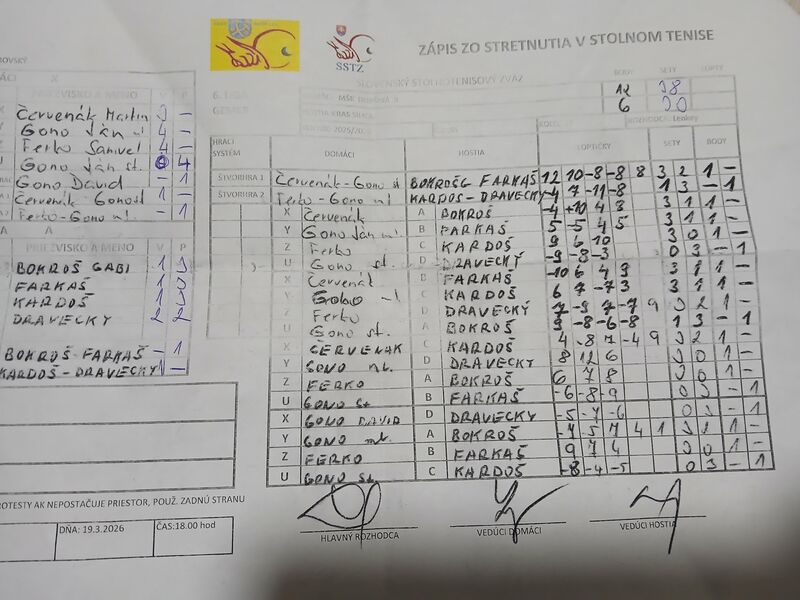 ZÁPIS ZO STRETNUTIA V STOLNOM TENISE
SSTZ
SLOVENSKÝ STOLNOTENISOVÝ ZVÄZ
BODY SETY LOPTY
6. LIGA
12 38
6 20
PRIEZVISKO A MENO V P
Červenák Martin 3 -
Gono Ján ml 4 -
Ferko Samuel 4 -
Gono Ján st. 4
Gono David - 1
Červenák Gono st 1 -
Ferko-Gono ml. - 1
PRIEZVISKO A MENO V P
BOKROŠ GABI 1 3
FARKAŠ 1 3
KARDOŠ 1 3
DRAVECKY 2 2
BOKROŠ FARKAŠ - 1
KARDOŠ-DRAVECKY 1 -
HRACÍ SYSTÉM DOMÁCI HOSTIA LOPTIČKY SETY BODY
ŠTVORHRA 1 Červenák-Gono st BOKROŠ FARKAŠ 12 10 -8 -8 8 3 2 1 -
ŠTVORHRA 2 Ferko-Gono ml. KARDOŠ-DRAVECKY -4 7 -11 -8 1 3 - 1
X Červenák A BOKROŠ -4 +10 4 3 3 1 1 -
Y Gono Ján ml B FARKAŠ 5 -5 4 5 3 1 1 -
Z Ferko C KARDOŠ 9 6 10 3 0 1 -
U Gono st. D DRAVECKY -9 -8 -3 0 3 - 1
X Červenák B FARKAŠ -10 6 4 9 3 1 1 -
Y Gono ml C KARDOŠ 6 7 -7 3 3 1 1 -
Z Ferko D DRAVECKÝ 7 -9 7 -7 9 3 2 1 -
U Gono st. A BOKROŠ 9 -8 -6 -8 1 3 - 1
X ČERVENÁK C KARDOŠ 4 -8 7 -4 9 3 2 1 -
Y GONO ml. D DRAVECKY 8 12 6 3 0 1 -
Z FERKO A BOKROŠ 6 7 8 3 0 1 -
U GONO st B FARKAŠ -6 -8 -9 0 3 - 1
X GONO DAVID D DRAVECKY -5 -7 -6 0 3 - 1
Y GONO ml. A BOKROŠ -7 5 7 4 3 1 1 -
Z FERKO B FARKAŠ 9 7 4 3 0 1 -
U GONO st. C KARDOŠ -8 -4 -5 0 3 - 1
HLAVNÝ ROZHODCA VEDÚCI DOMÁCI VEDÚCI HOSTIA
PROTESTY AK NEPOSTAČUJE PRIESTOR, POUŽ. ZADNÚ STRANU
DŇA: 19.3.2026 ČAS:18.00 hod